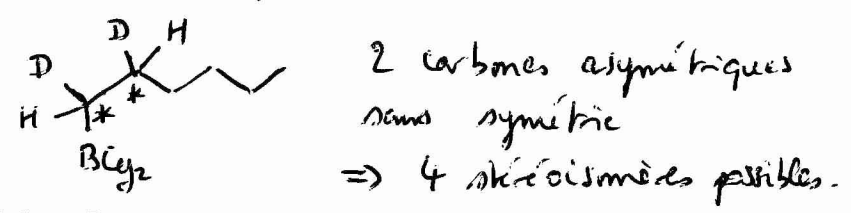 D H
D
H * *
BCy2
2 carbones asymétriques
sans symétrie
=> 4 stéréoisomères possibles.